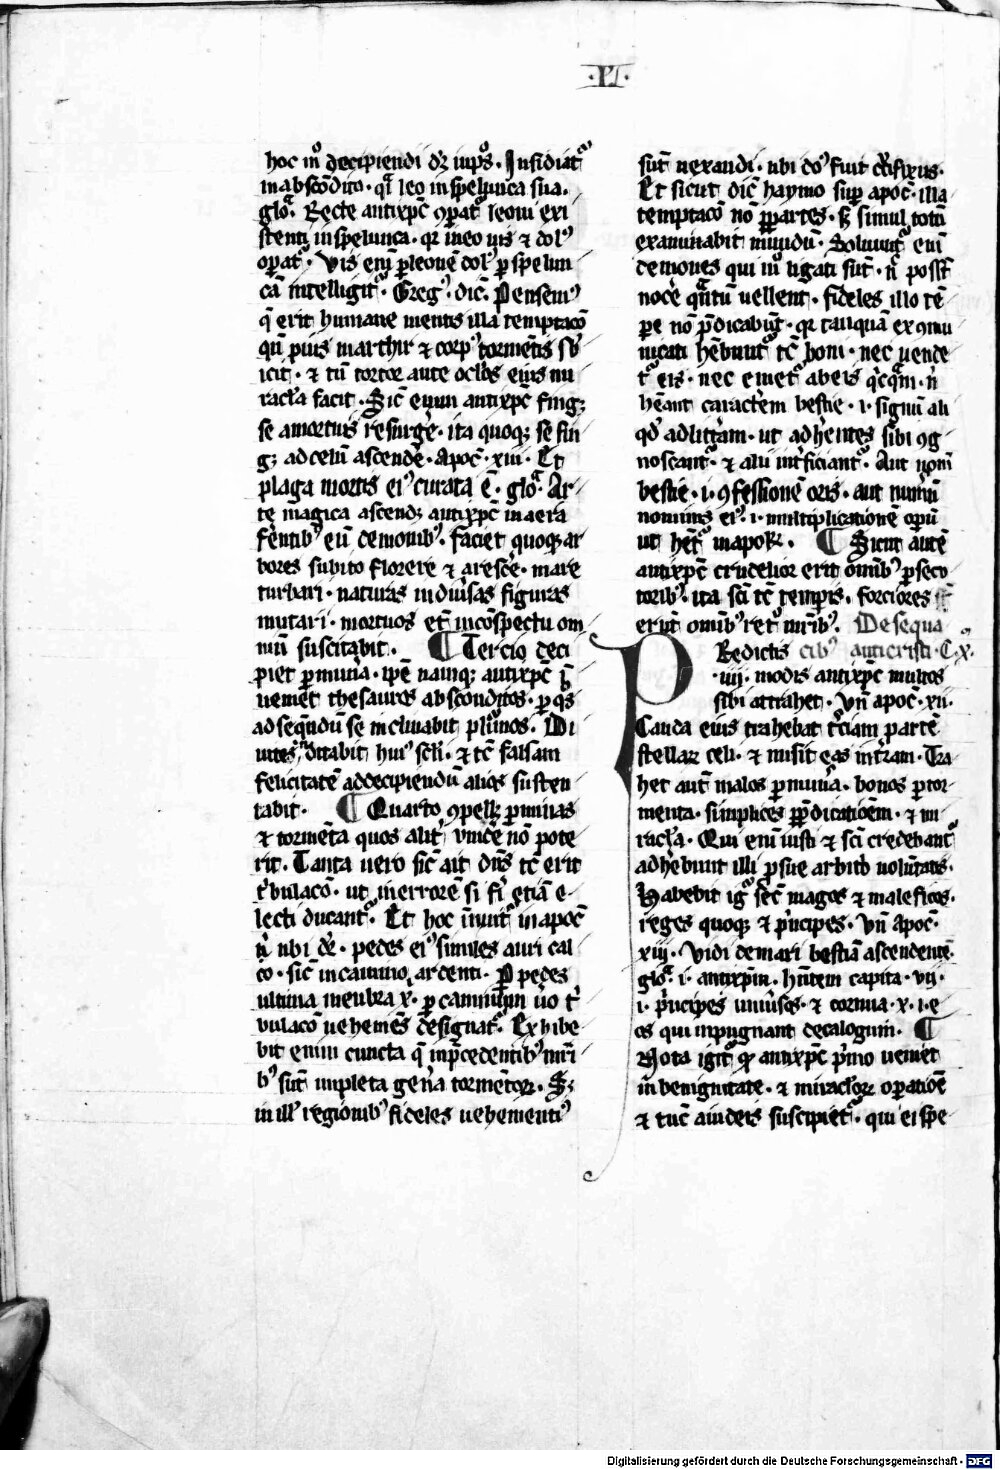 ·VI·
hoc mͦ decipiendi dꝛ in pͦs. Insidiat᷑
in abscōdito. qͣi leo in spelunca sua.
gloͣ. Recte antixp̄c ꝯparat᷑ leoni exi
stenti in spelunca. qꝛ in eo uis ⁊ dolꝰ
opat᷑. Vis eni᷑ p leonē dolꝰ p spelun
cā intelligit᷑. Gregꝰ. dic̄. Pensemꝰ
q̄ erit humane mentis illa temptacō
qn̄ pius marthir ⁊ corpꝰ tormētis sb
icit. ⁊ tn̄ tortor ante oclos eius mi
racl̓a facit. Sic̄ enim antixp̄c fingꝫ
se a mortuis resurge̓. ita quoqꝫ se fin
gꝫ ad celū ascende̓. Apoc̄. xiii. Et
plaga mortis eiꝰ curata ē. gloͣ. Ar
te magica ascendꝫ antixp̄c in aera
fe̓ntibꝰ eū demonibꝰ. faciet quoqꝫ ar
bores subito florere ⁊ aresce̓. mare
turbari. naturas in diu̓sas figuras
mutari. mortuos et᷑ in cōspectu om
niū suscitabit. ¶ Tercio deci
piet p mun̓a. ip̄e namqꝫ antixp̄c
ueniet thesauros absconditos. p qͦs
ad seqn̄dū se inclinabit plim̓os. Di
uites ditabit huiꝰ scl̓i. ⁊ tc̄ falsam
felicitatē ad decipiendū alios susten
tabit. ¶ Quarto ꝯpellꝫ p minas
⁊ tormēta quos alit᷑ vince̓ nō pote
rit. Tanta uero sic̄ ait dn̄s tc̄ erit
t̓bulacō. ut in errorē si fi᷑ etiā e
lecti ducant᷑. Et hoc inuit᷑ in apoc̄
ubi dꝛ. pedes eiꝰ similes auri cal
co. sic̄ in camino ardenti. P pedes
ultima menbra x̄. p caminum u̓o t̓
bulacō uehemēs designat᷑. Exhibe
bit enim cuncta q̄ in p̄cedentibꝰ mr̄i
bꝰ sūt impleta gen̓a tormentoꝝ. Sꝫ
in illꝰ regionibꝰ fideles uehementiꝰ
sūt uexandi. ubi dōꝰ fuit cruc̓ifixus.
Et sicut dic̄ haymo sup apoc̄. illa
temptacō nō p partes. sꝫ simul totū
examinabit mundū. Soluunt᷑ eni᷑
demones qui mͦ ligati sūt. n̄ poss̄t
noce̓ qn̄tū uellent. fideles illo tē
pe nō p̄dicabūt. qꝛ tanquā exꝯmu
nicati hēbunt᷑ tc̄ boni. nec uende
t᷑ eis. nec emet᷑ ab eis qͥcqͣm. n̄
hēant caracte̓m bestie. i. signū ali
qd̓ ad litt̓am. ut adhe̓ntes sibi ꝯg
noscant᷑. ⁊ alii int̓ficiant᷑. Aut nomē
bestie. i. ꝯfessionē oris. aut num̓m
nominis eiꝰ. i. multiplicationē opū
ut het᷑ in apokꝭ. ¶ Sicut autē
antixp̄c crudelior erit om̄ibꝰ psecu
toribꝰ. ita sc̄i tc̄ tempis. forciores
erūt omibꝰ ret᷑ mr̄ibꝰ. De sequa
cibꝰ anticristi. C. x.
Predictis
iiii. modis antixp̄c multos
sibi attrahet. Vn̄ apoc̄. xii.
Cauda eius trahebat t̓ciam partē
stellaꝝ celi. ⁊ misit eas in t̓ram. Tra
het aut̄ malos p mun̓a. bonos p tor
menta. simplices p p̄dicationem. ⁊ mi
racl̓a. Qui eni᷑ iusti ⁊ sc̄i credebant᷑
adhebunt illi p sue arbitͦ uolūtatis.
Habebit igͥ secū magos ⁊ maleficos.
reges quoqꝫ ⁊ pͥncipes. Vn̄ Apoc̄.
xiij. Vidi de mari bestiā ascendentē.
gloͣ. i. antixp̄m. hn̄tem capita. vii.
i. pͥncipes uniu̓sos. ⁊ cornua. x. i. e
os qui inpugnant decalogum. ¶
Nota igit᷑ qꝫ antixp̄c pͥmo ueniet
in benignitate. ⁊ miracloꝝ opatioē
⁊ tūc a iudeis suscipiet᷑. qui ei spe
Digitalisierung gefördert durch die Deutsche Forschungsgemeinschaft - DFG